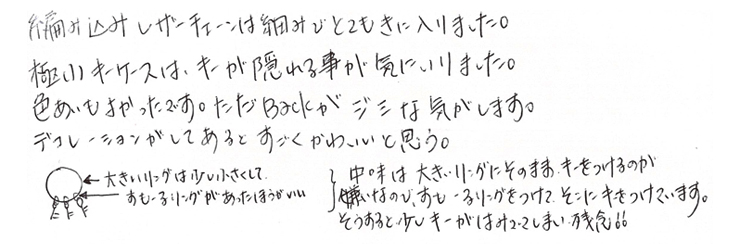 編み込みレザーチェーンは細みでとてもきに入りました。
極小キーケースは、キーが隠れる事が気にいりました。
色あいもよかったです。ただBackがジミな気がします。
デコレーションがしてあるとすごくかわいいと思う。
大きいリングは少し小さくして、
すもーるリングがあったほうがいい
中味は大きいリングにそのまま、キーをつけるのが
嫌いなので、すもーるリングをつけて、そこにキをつけています。
そうすると少しキーがはみでてしまい残念!!